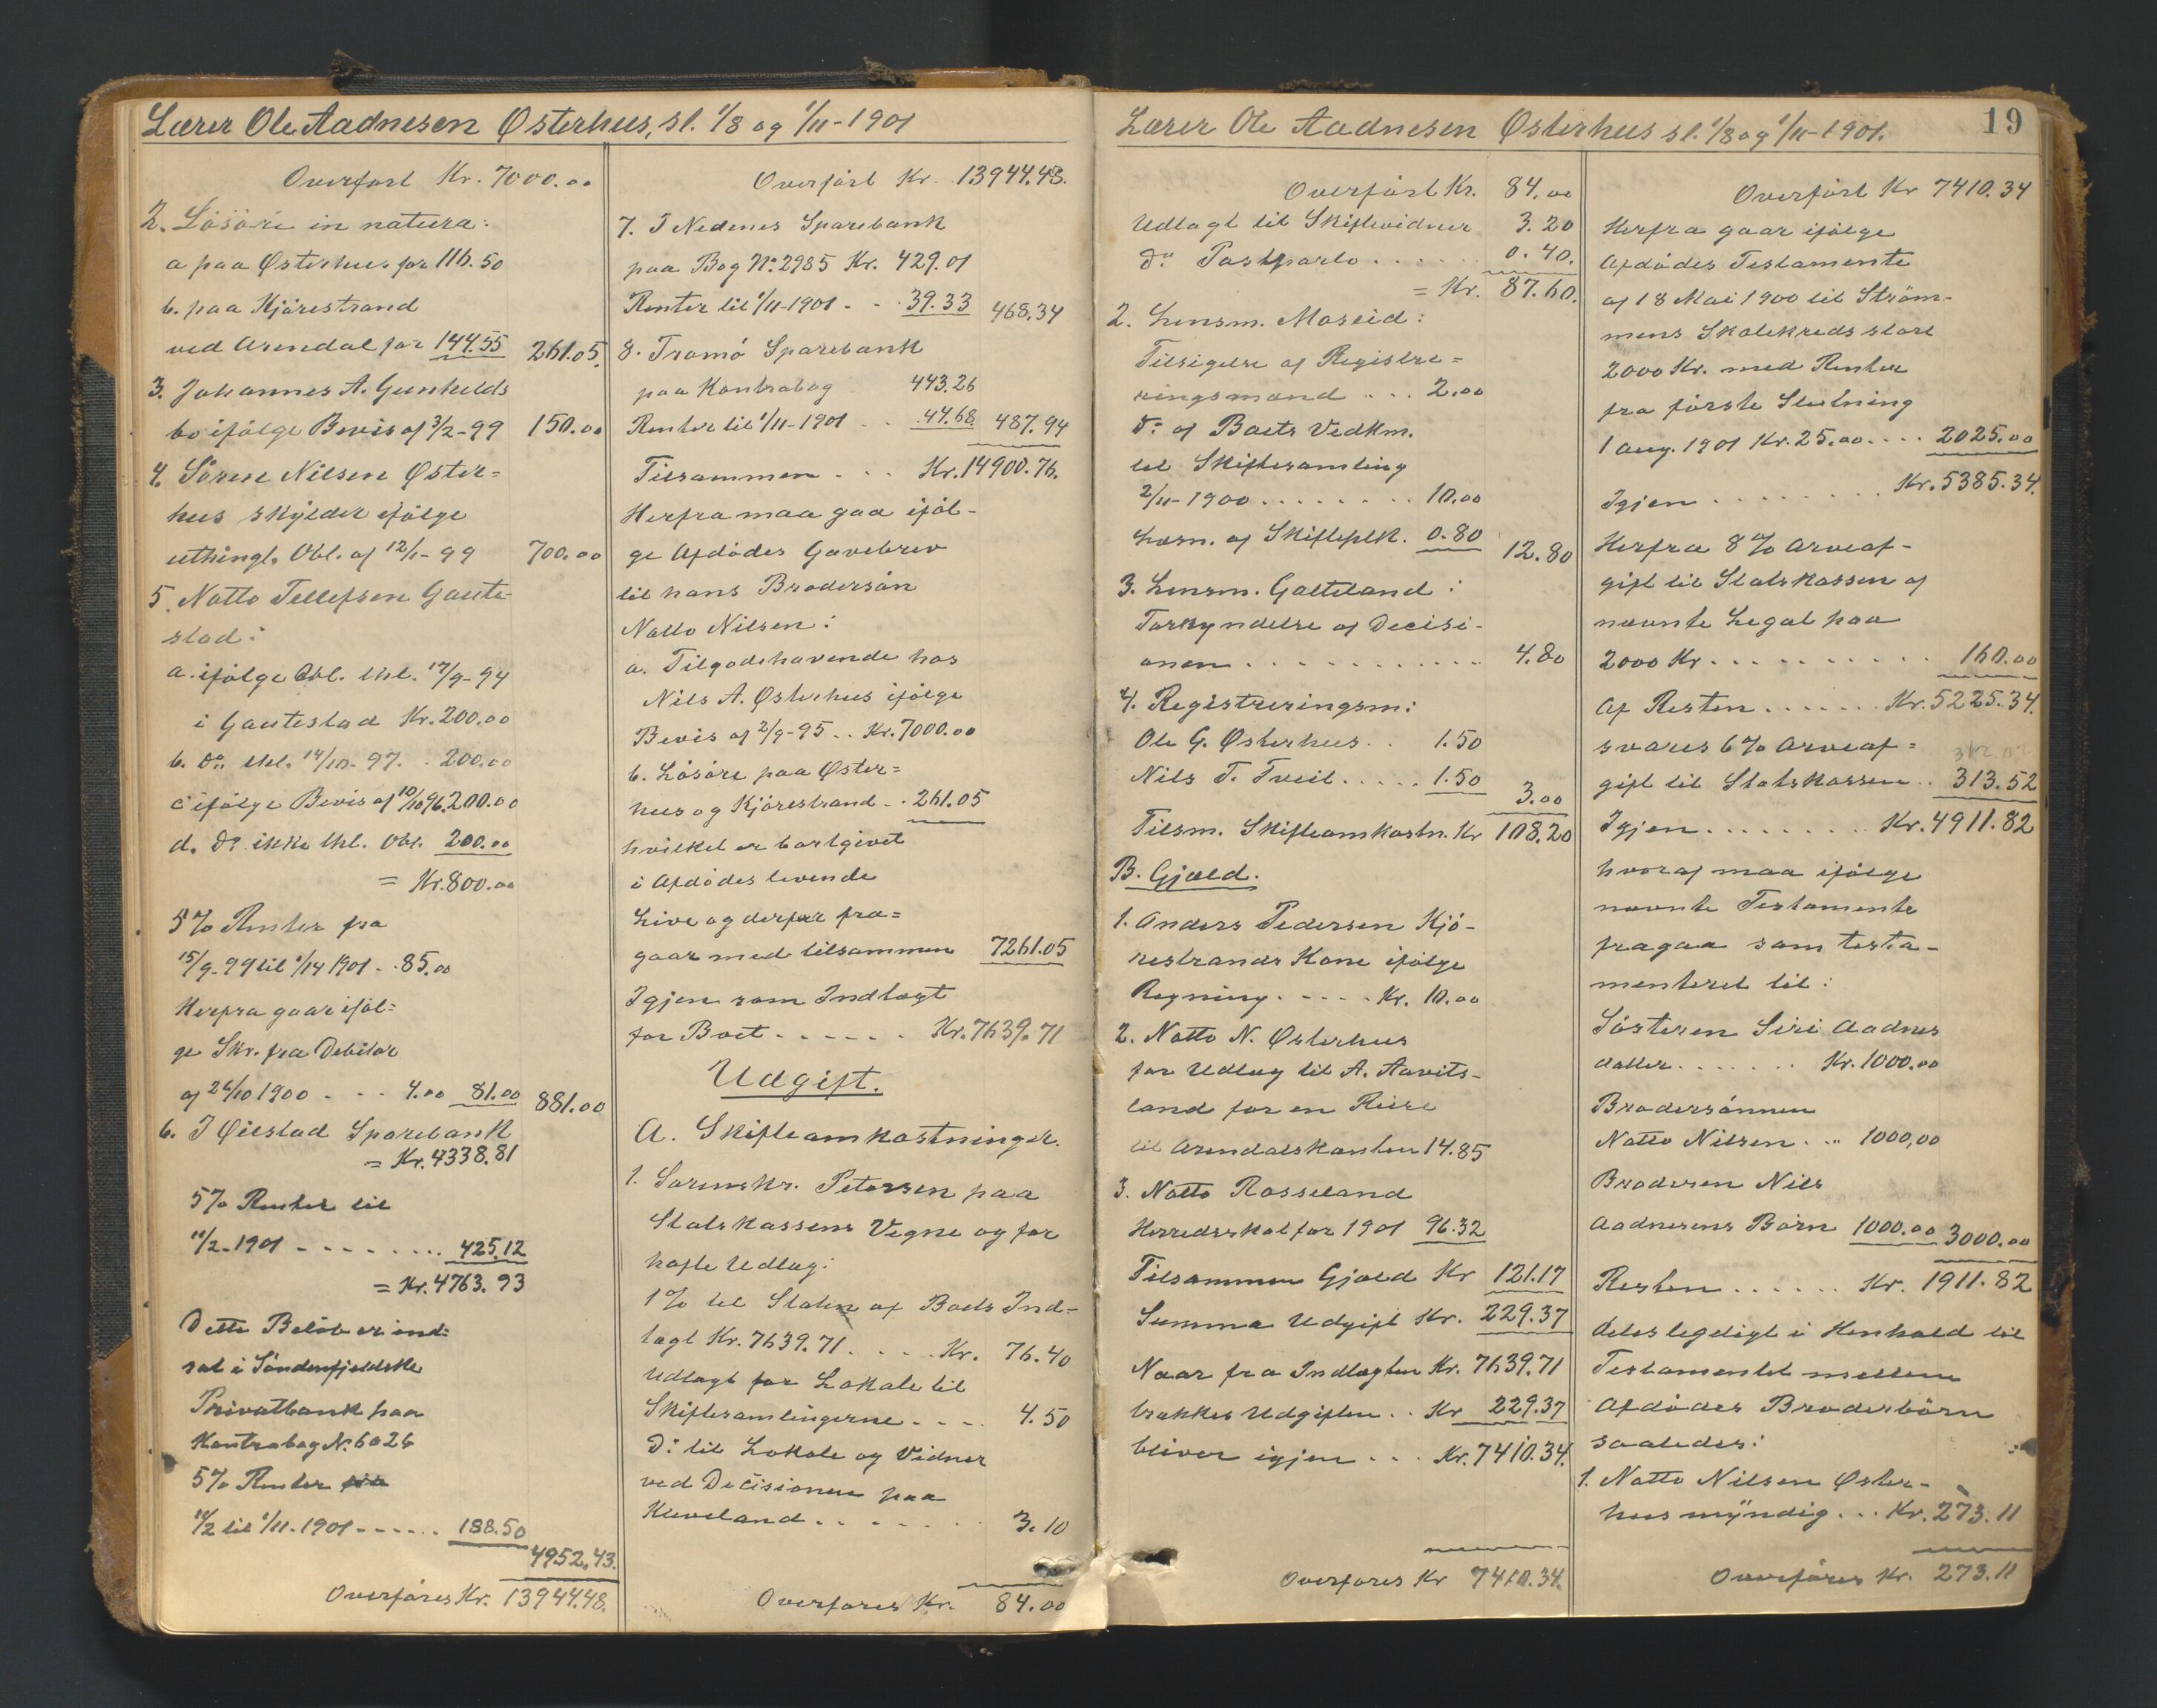 Lærer Ole Aadnesen Østerhus, sl. 1/8 og 1/11-1901
Overført Kr. 7000.00
2. Løsøre in natura:
a paa Østerhus for 116.50
b. paa Kjørestrand
ved Arendal for 144.55 261.05.
3. Johannes A. Gunhelds
bo ifølge Bevis af 3/2-99 150.00
4. Søren Nilsen Øster=
hus skylder ifølge
uthingl. Obl. af 12/1-99 700.00
5. Natto Tellefsen Gaute-
stad:
a. ifølge Obl. thl. 17/9-94
i Gautestad Kr. 200.00
b. Do. thl. 14/10-97. . 200.00
c ifølge Bevis af 10/10 96. 200.00
d. Do. ikke thl. Obl. 200.00
= Kr. 800.00
5% Renter fra
15/9-99 til 1/14 1901 . . 85.00
Herfra gaar iføl=
ge Skr. fra Debitor
af 26/10 1900 . . . 4.00 81.00 881.00
6. I Øiestad Sparebank
= Kr. 4338.81
5% Renter til
11/2-1901 . . . . . . . . 425.12
= Kr. 4763.93
Dette Beløb er ind=
sat i Søndenfjeldske
Privatbank paa
Kontrabog No. 6026
5% Renter fra
11/2 til 1/11-1901 . . . . . . 188.50
4952.43.
Overføres Kr. 13944.48.
Overført Kr. 13944.48.
7. I Nedenes Sparebank
paa Bog No. 2985 Kr. 429.01
Renter til 1/11-1901 . . . 39.33 468.34
8. Tromø Sparebank
paa Kontrabog 443.26
Renter til 1/11-1901 . . 44.68 487.94
Tilsammen . . . Kr. 14900.76.
Herfra maa gaa iføl-
ge Afdødes Gavebrev
til hans Brodersøn
Natto Nilsen:
a. Tilgodehavende hos
Nils A. Østerhus ifølge
Bevis af 2/9-95 . . Kr. 7000.00
b. Løsøre paa Øster=
hus og Kjørestrand . . 261.05
hvilket er bortgivet
i Afdødes levende
Live og derfor fra=
gaar med tilsammen 7261.05
Igjen som Indtægt
for Boet . . . . . . Kr. 7639.71
Udgift.
A. Skifteomkostninger.
1. Sorenskr. Petersen paa
Statskassens Vegne og for
hafte Udlæg:
1% til Staten af Boets Ind=
tægt Kr. 7639.71 . . . . Kr. 76.40
Udlagt for Lokale til
Skiftesamlingerne . . . . 4.50
Do. til Lokale og Vidner
ved Decisionen paa
Kleveland . . . . . . . 3.10
Overføres Kr. 84.00
Lærer Ole Aadnesen Østerhus sl. 1/8 og 1/11-1901.
19
Overført Kr. 84.00
Udlagt til Skiftevidner 3.20
Do. Postporto . . . . . . 0.40.
= Kr. 87.60.
2. Lensm. Moseid:
Tilsigelse af Registre=
ringsmænd . . . 2.00
Do. af Boets Vedkm.
til Skiftesamling
2/11-1900 . . . . . . . . 10.00
Læsn. af Skifteplk. 0.80 12.80
3. Lensm. Galteland:
Forkyndelse af Decisi-
onen . . . . . . . . . . . 4.80
4. Registreringsm:
Ole G. Østerhus . . 1.50
Nils T. Tveit . . . . . 1.50 3.00
Tilsm. Skifteomkostn. Kr 108.20
B. Gjæld.
1. Anders Pedersen Kjø-
restrands Kone ifølge
Regning . . . . Kr. 10.00
2. Natto N. Østerhus
for Udlæg til A. Aavits-
land for en Reise
til Arendalskanten 14.85
3. Natto Rosseland
Herredsskat for 1901 96.32
Tilsammen Gjæld Kr 121.17
Summa Udgift Kr. 229.37
Naar fra Indtægten Kr. 7639.71
trækkes Udgiften . . Kr 229.37
bliver igjen . . . Kr. 7410.34.
Overføres Kr 7410.34.
Overført Kr 7410.34
Herfra gaar ifølge
Afdødes Testamente
af 18 Mai 1900 til Strøm-
mens Skolekreds stort
2000 Kr. med Renter
fra første Slutning
1 aug. 1901 Kr. 25.00 . . . . 2025.00
Igjen . . . . . . . . Kr. 5385.34.
Herfra 8% Arveaf-
gift til Statskassen af
nævnte Legat paa
2000 Kr . . . . . . . . . . 160.00
Af Resten . . . . . . Kr. 5225.34.
svares 6% Arveaf=
gift til Statskassen . . 313.52
Igjen . . . . . . . . . Kr. 4911.82
hvoraf maa ifølge
nævnte Testamente
fragaa som testa-
menteret til:
Søsteren Siri Aadnes
datter . . . . . . . Kr. 1000.00
Brodersønnen
Natto Nilsen . . " 1000,00
Broderen Nils
Aadnesens Børn 1000.00 3000.00
Resten . . . . . . Kr. 1911.82
deles ligeligt i Henhold til
Testamentet mellem
Afdødes Broderbørn
saaledes:
1. Natto Nilsen Øster-
hus myndig . . . Kr. 273.11
Overføres Kr. 273.11